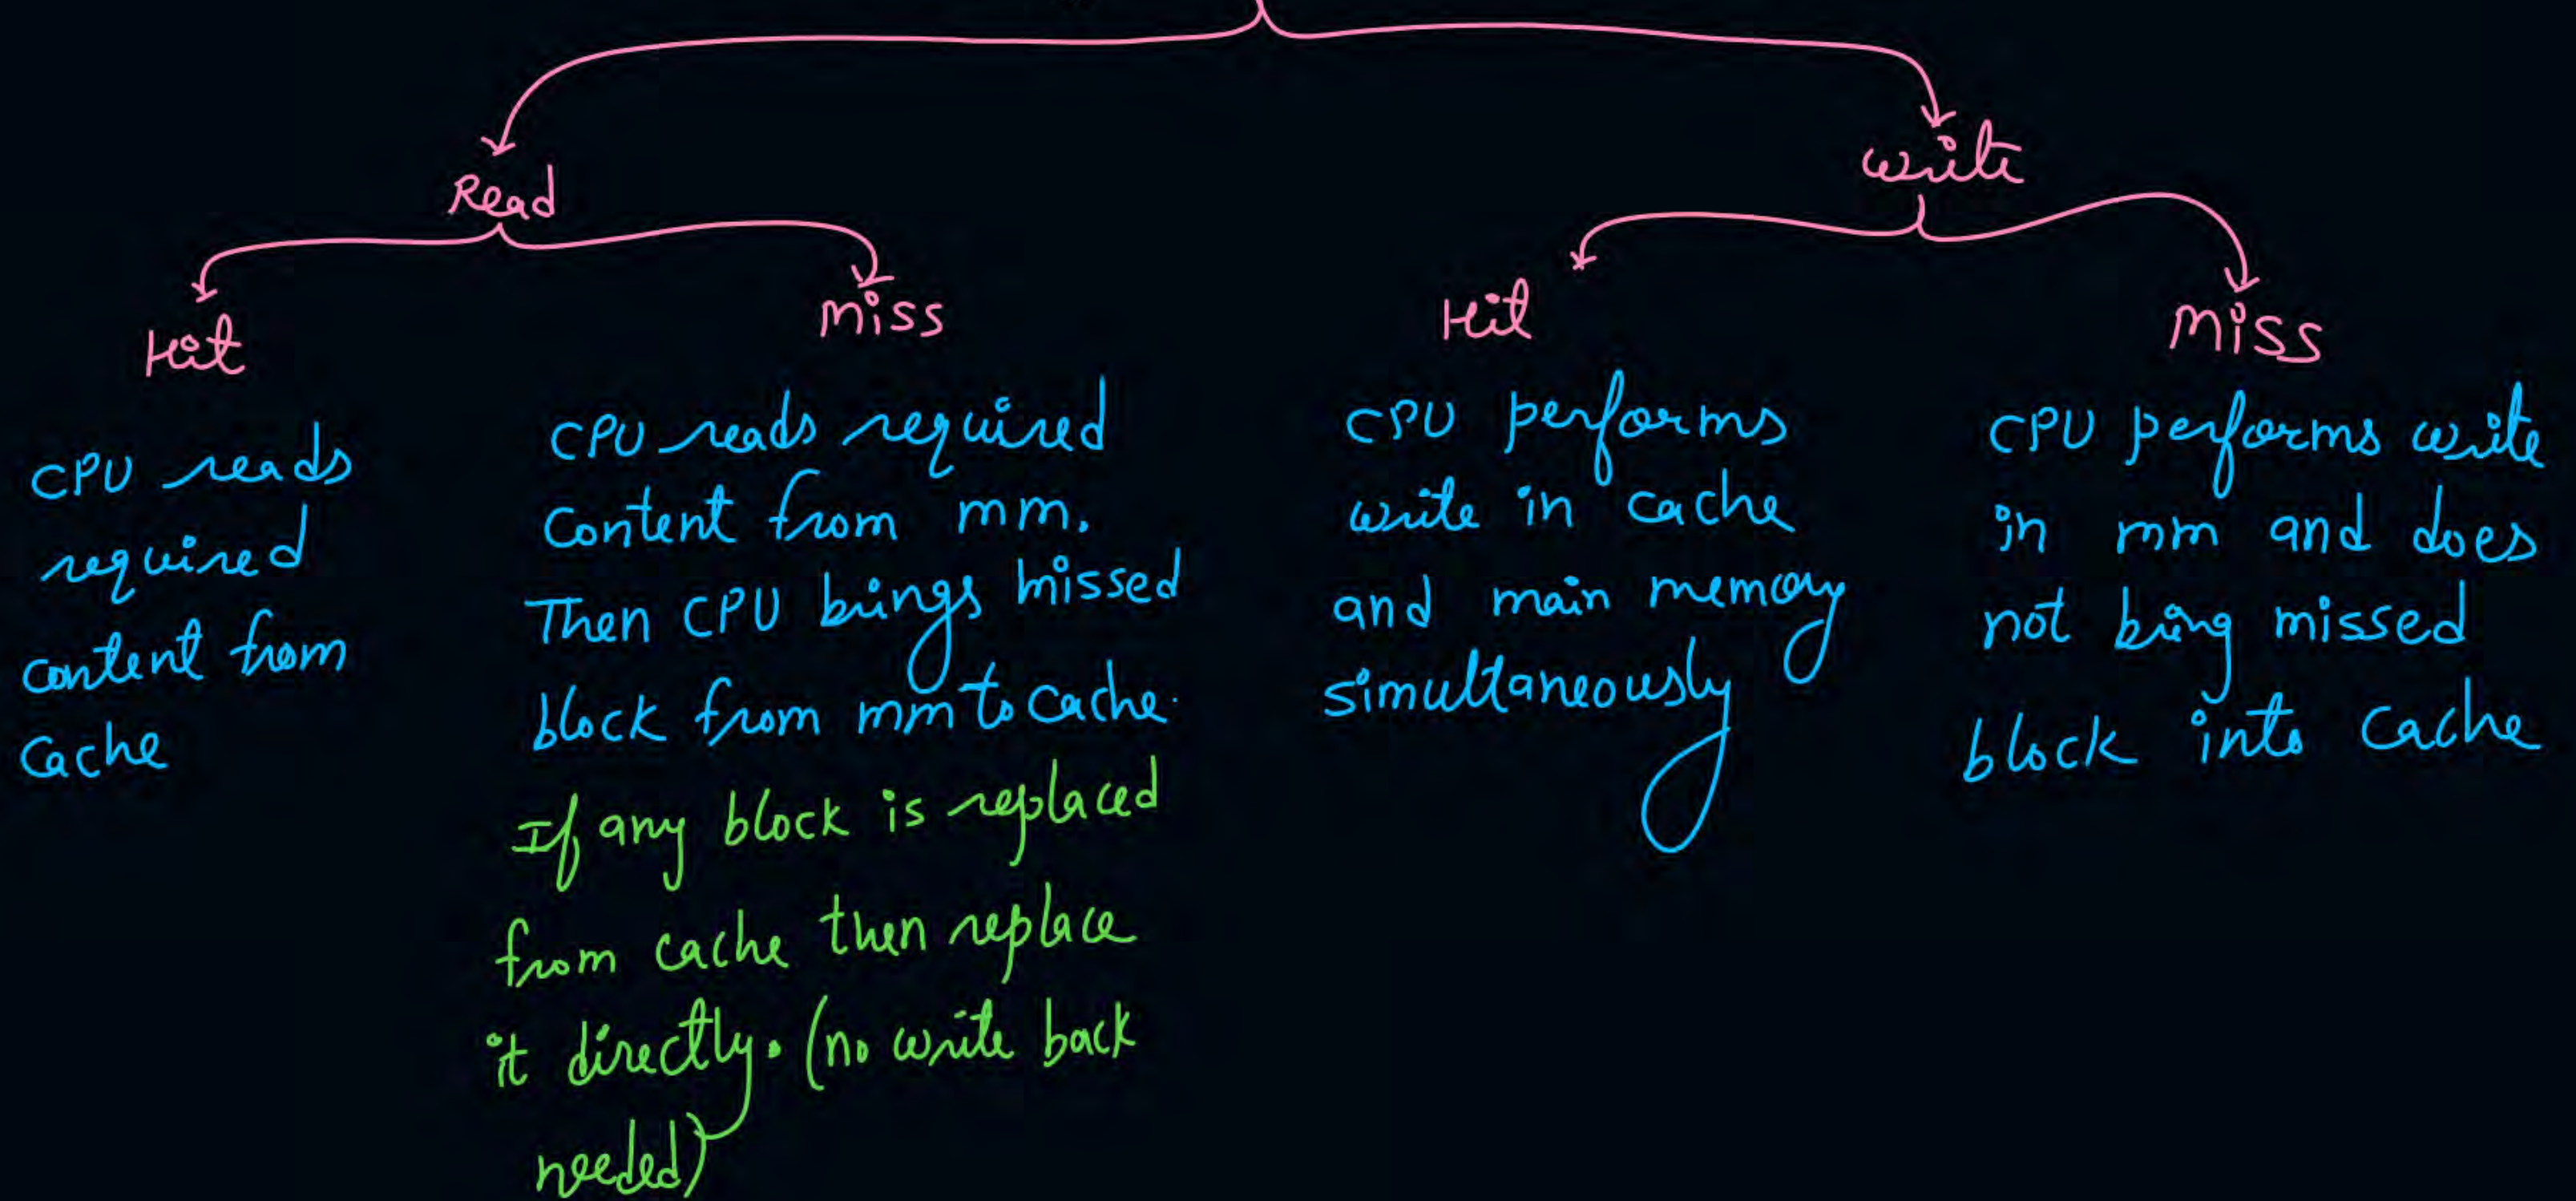 Read
write
Hit
miss
Hit
miss
CPU reads
required
content from
Cache
CPU reads required
Content from mm.
Then CPU brings missed
block from mm to cache.
If any block is replaced
from cache then replace
it directly. (no write back
needed)
CPU performs
write in cache
and main memory
simultaneously
CPU performs write
in mm and does
not bring missed
block into cache